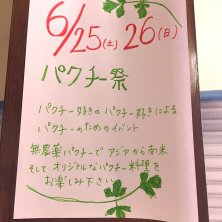 6/25(土) 26(日)
パクチー祭
パクチー好きのパクチー好きによる
パクチーのためのイベント
無農薬パクチーでアジアから南米
そしてオリジナルなパクチー料理を
お楽しみ下さい